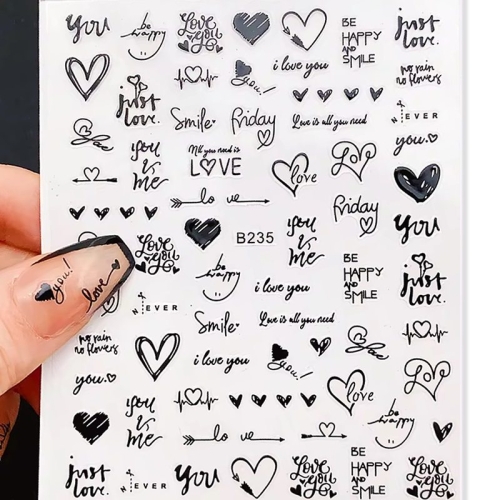 you
be
happy
Love
You
BE
HAPPY
AND
SMILE
just
love.
i love you
no rain
no flowers
you!
just
love.
Smile
Friday
Love is all you need
N EVER
S
you
you
&
me
All you need is
LOVE
love
Love
lo ve
Friday
you
Love
you
B235
you
&
me
be
happy
BE
HAPPY
AND
SMILE
just
love.
you!
love
i love you
N EVER
S
Smile
Love is all you need
no rain
no flowers
i love you
you!
Love
you
you
&
me
love
be
happy
lo ve
BE
HAPPY
AND
SMILE
just
love.
N EVER
S
you
Love
You
Love
You